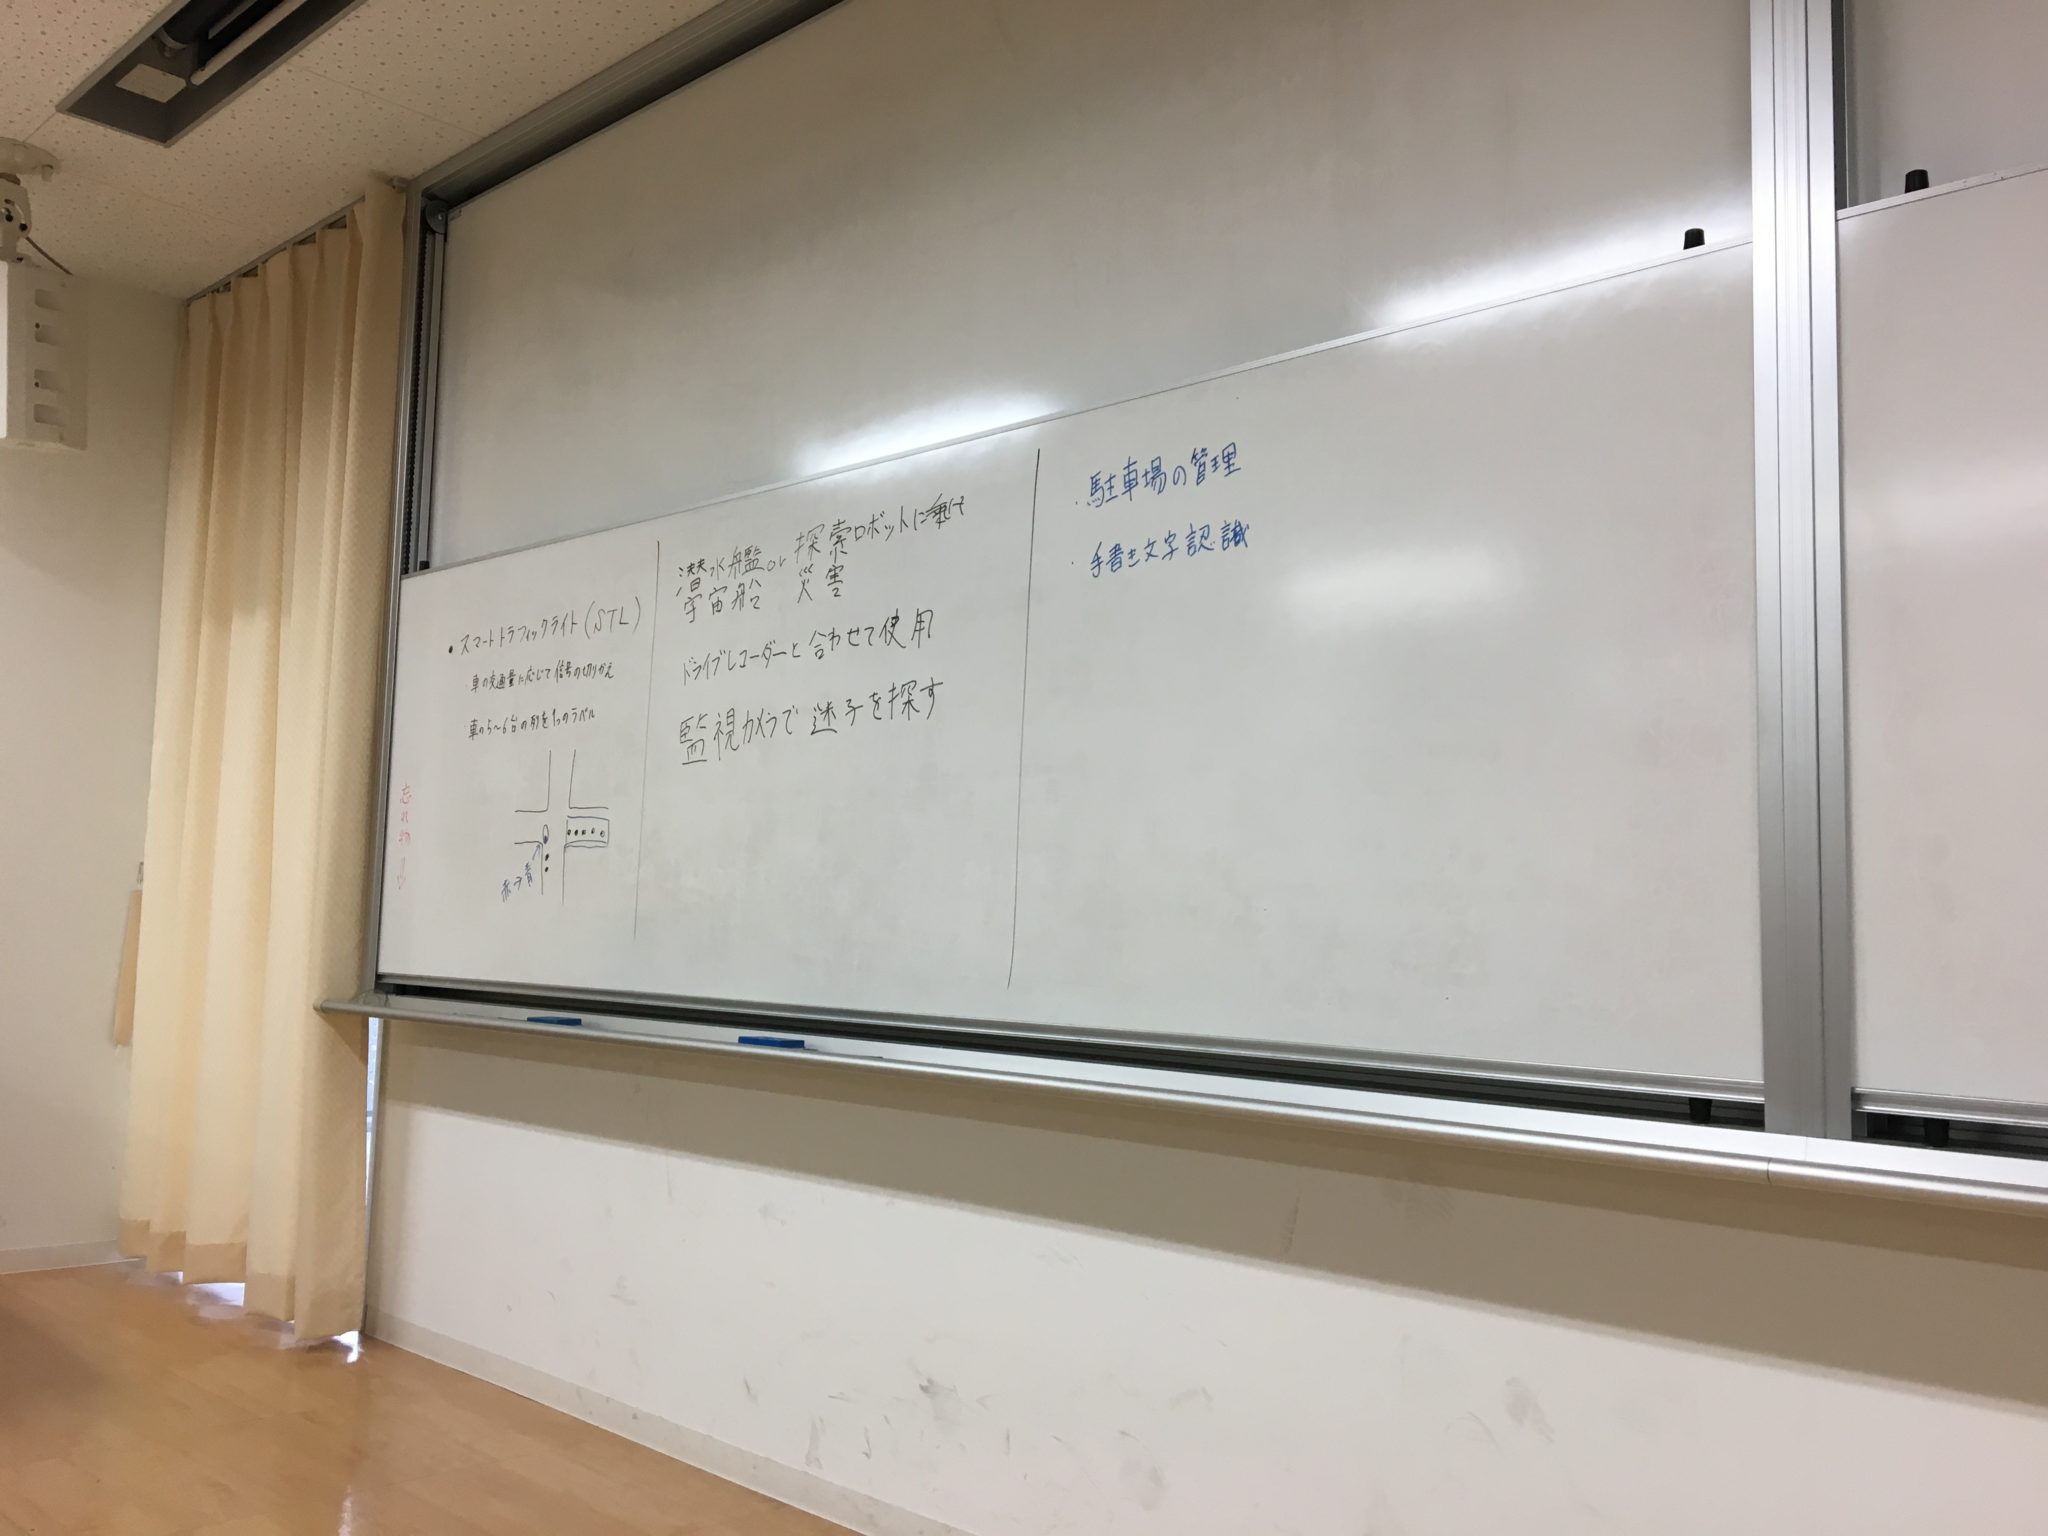 ・スマートトラフィックライト(STL)
・車の交通量に応じて信号の切りかえ
・車の5〜6台の列を1つのラベル
赤→青
忘れ物↓
潜水艦or探索ロボットに乗せ
宇宙船 災害
ドライブレコーダーと合わせて使用
監視カメラで迷子を探す
・駐車場の管理
・手書き文字認識